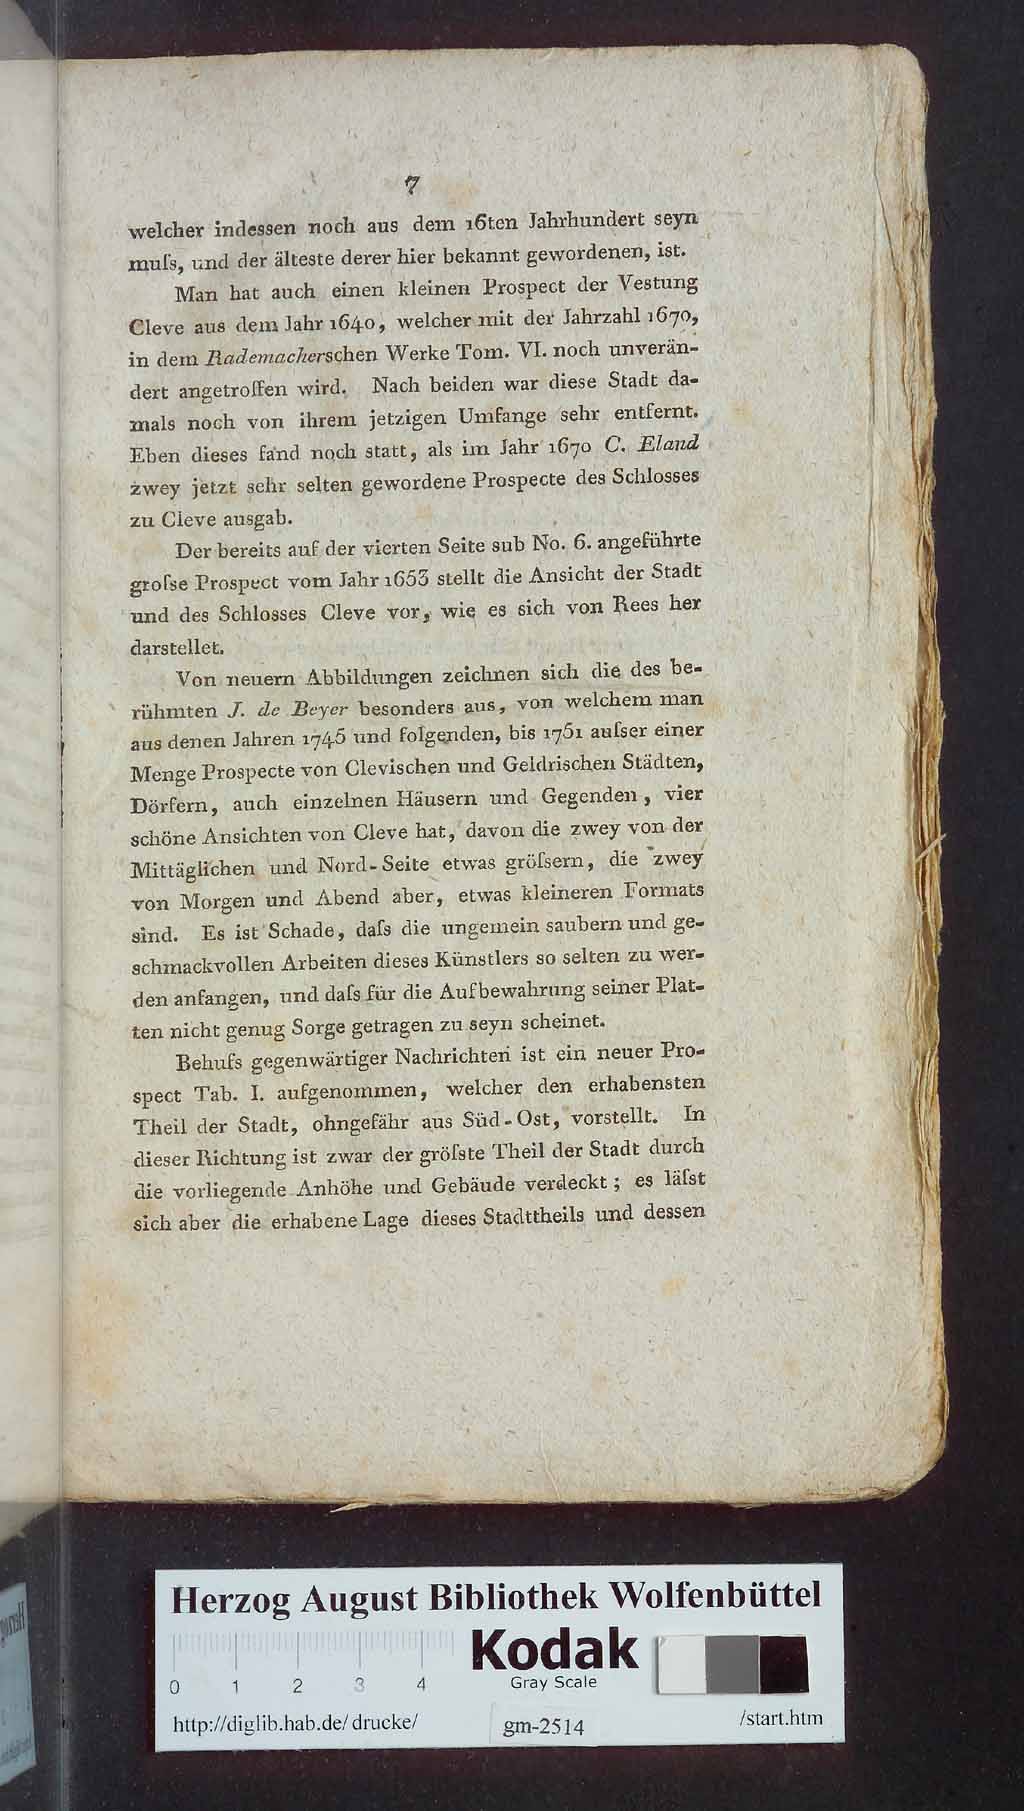 7
welcher indessen noch aus dem 16ten Jahrhundert seyn
muſs, und der älteste derer hier bekannt gewordenen, ist.
Man hat auch einen kleinen Prospect der Vestung
Cleve aus dem Jahr 1640, welcher mit der Jahrzahl 1670,
in dem Rademacherschen Werke Tom. VI. noch unverän-
dert angetroffen wird. Nach beiden war diese Stadt da-
mals noch von ihrem jetzigen Umfange sehr entfernt.
Eben dieses fand noch statt, als im Jahr 1670 C. Eland
zwey jetzt sehr selten gewordene Prospecte des Schlosses
zu Cleve ausgab.
Der bereits auf der vierten Seite sub No. 6. angeführte
groſse Prospect vom Jahr 1653 stellt die Ansicht der Stadt
und des Schlosses Cleve vor, wie es sich von Rees her
darstellet.
Von neuern Abbildungen zeichnen sich die des be-
rühmten J. de Beyer besonders aus, von welchem man
aus denen Jahren 1745 und folgenden, bis 1751 auſser einer
Menge Prospecte von Clevischen und Geldrischen Städten,
Dörfern, auch einzelnen Häusern und Gegenden, vier
schöne Ansichten von Cleve hat, davon die zwey von der
Mittäglichen und Nord-Seite etwas gröſsern, die zwey
von Morgen und Abend aber, etwas kleineren Formats
sind. Es ist Schade, daſs die ungemein saubern und ge-
schmackvollen Arbeiten dieses Künstlers so selten zu wer-
den anfangen, und daſs für die Aufbewahrung seiner Plat-
ten nicht genug Sorge getragen zu seyn scheinet.
Behufs gegenwärtiger Nachrichten ist ein neuer Pro-
spect Tab. I. aufgenommen, welcher den erhabensten
Theil der Stadt, ohngefähr aus Süd-Ost, vorstellt. In
dieser Richtung ist zwar der gröſste Theil der Stadt durch
die vorliegende Anhöhe und Gebäude verdeckt; es läſst
sich aber die erhabene Lage dieses Stadttheils und dessen
Herzog August Bibliothek Wolfenbüttel
Kodak
Gray Scale
0 1 2 3 4
http://diglib.hab.de/drucke/ gm-2514 /start.htm